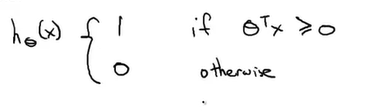 hθ(x) { 1 if θᵀx ≥ 0
0 otherwise